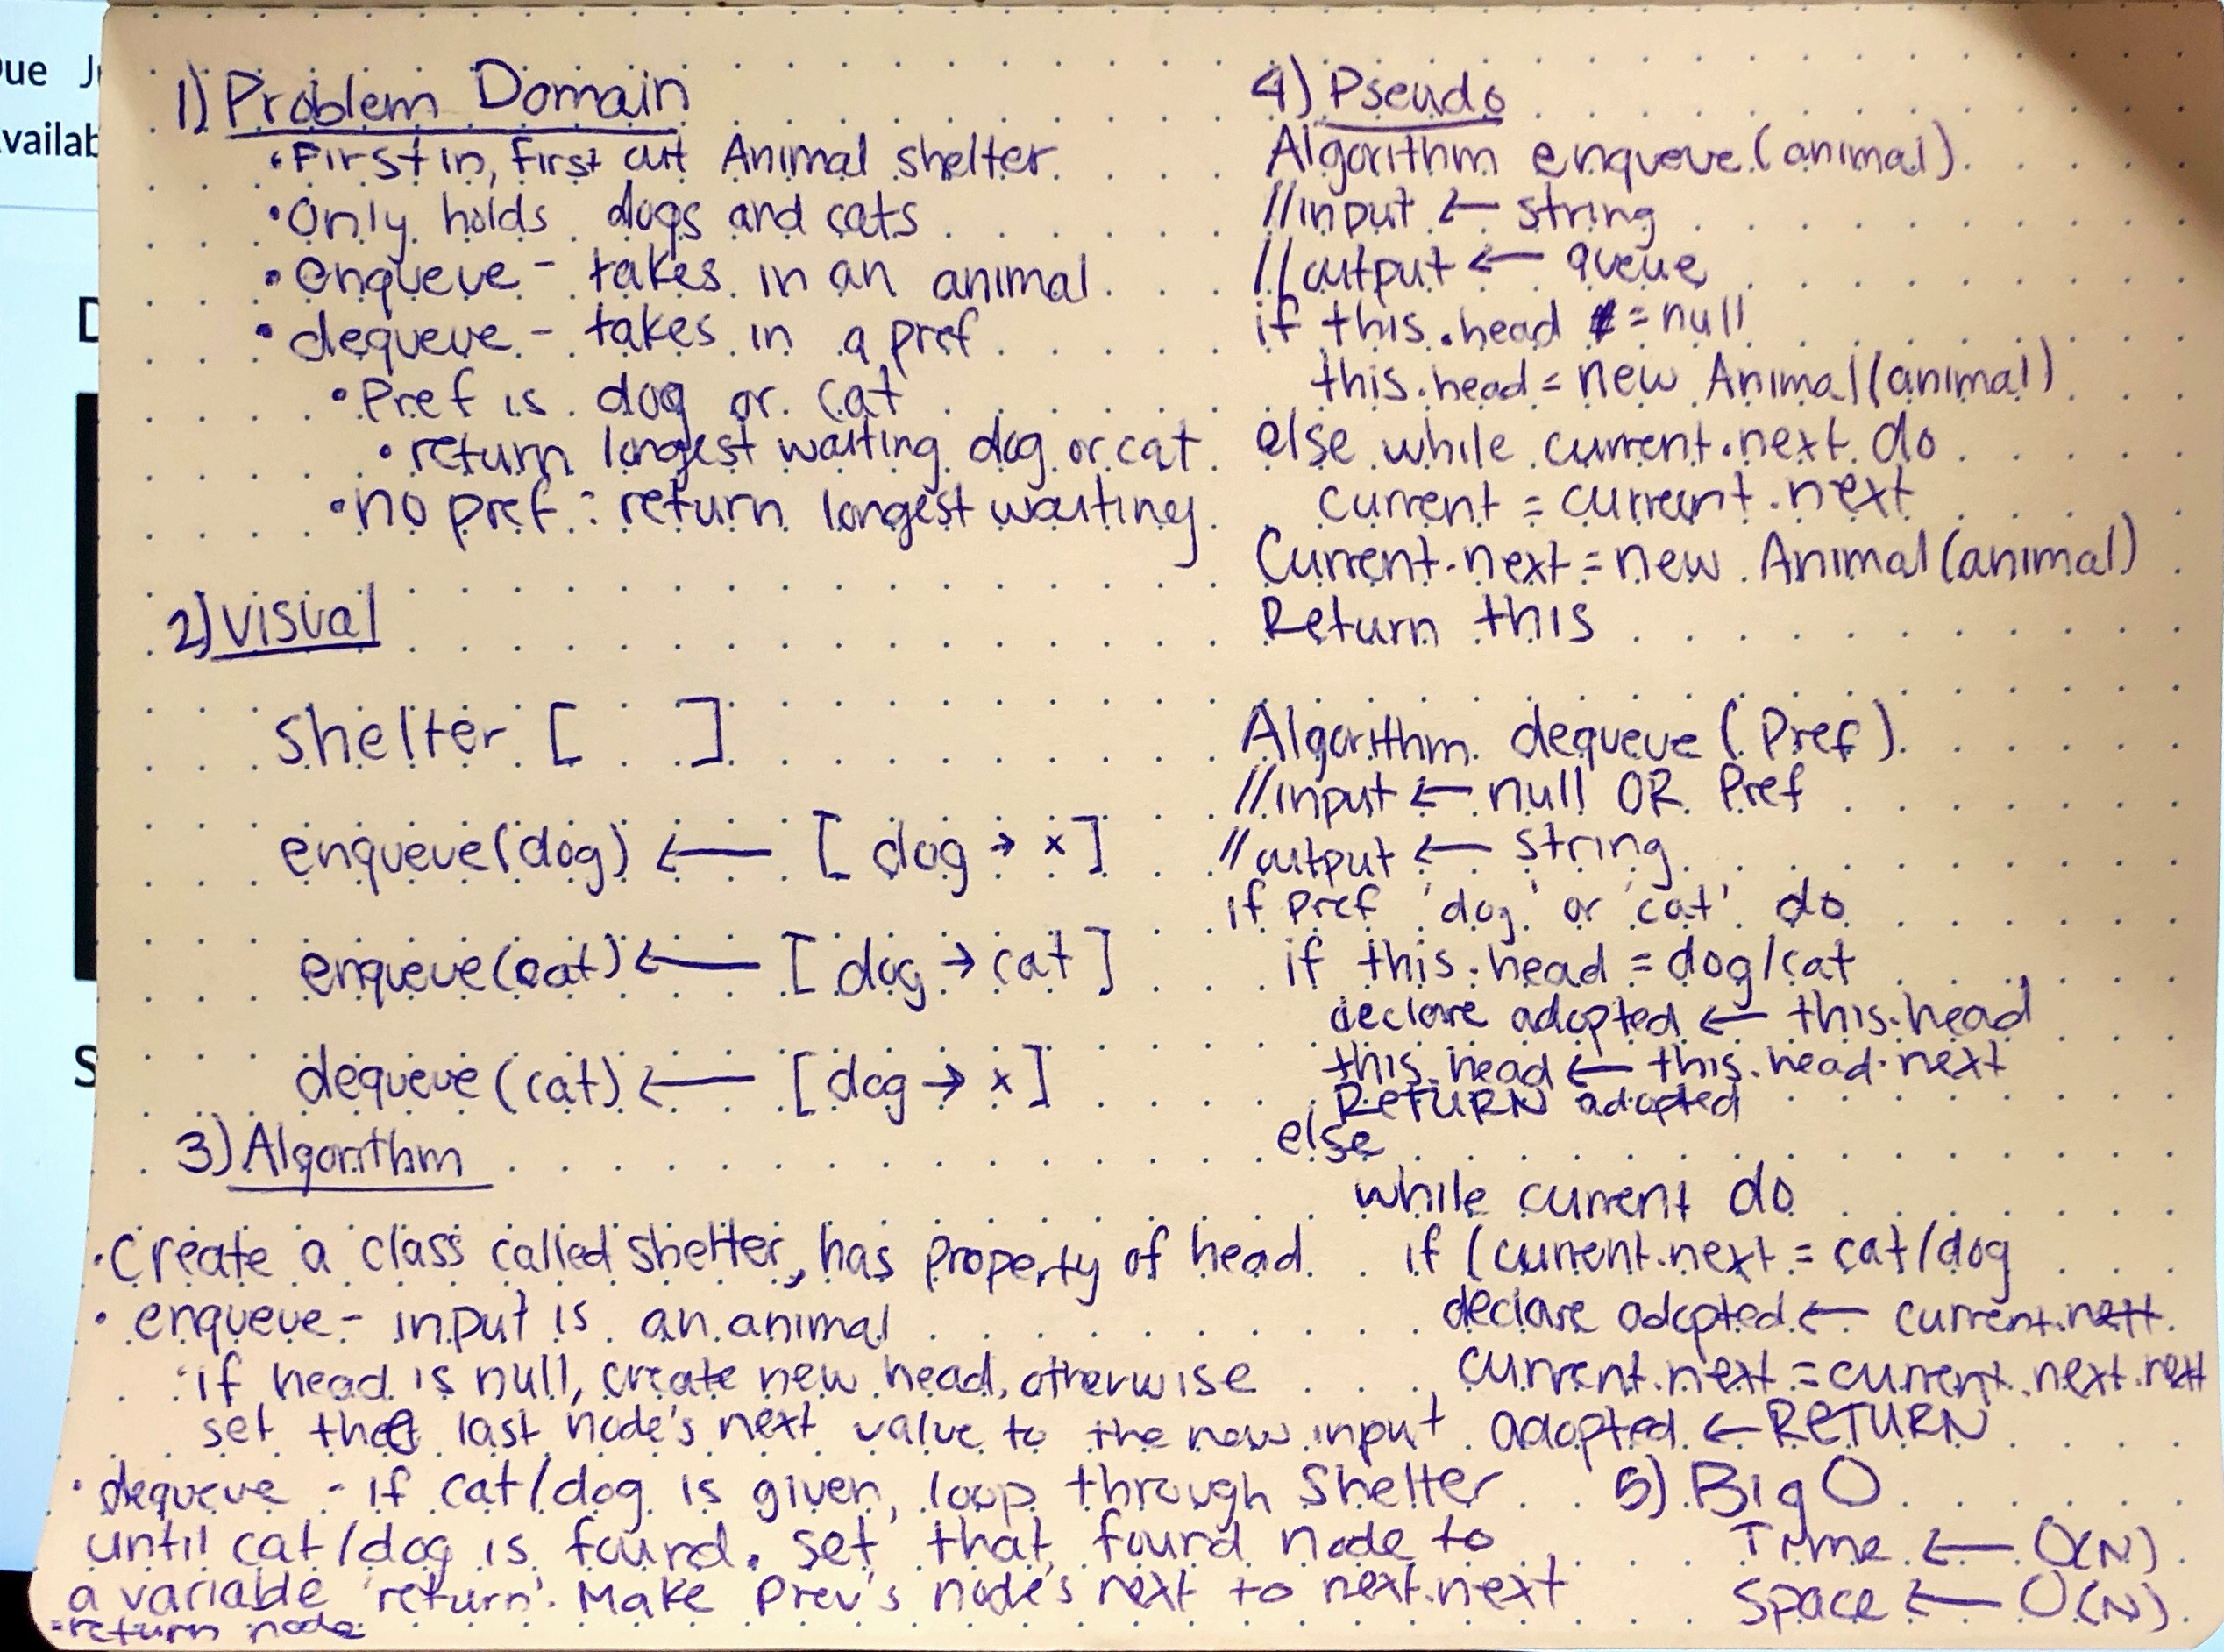 Due J
vailab
D
S
1) Problem Domain
• First in, first out Animal shelter
• Only holds dogs and cats
• enqueue - takes in an animal
• dequeue - takes in a pref
• Pref is dog or cat
• return longest waiting dog or cat
• no pref : return longest waiting
2) Visual
Shelter [ ]
enqueue(dog) ← [ dog → x ]
enqueue(cat) ← [ dog → cat ]
dequeue(cat) ← [ dog → x ]
3) Algorithm
• Create a class called Shelter, has property of head
• enqueue - input is an animal
• if head is null, create new head, otherwise
set the last node's next value to the new input
• dequeue - if cat/dog is given, loop through Shelter
until cat/dog is found. set that found node to
a variable 'return'. Make Prev's node's next to next.next
• return node
4) Pseudo
Algorithm enqueue(animal)
//input ← string
//output ← queue
if this.head = null
this.head = new Animal(animal)
else while current.next do
current = current.next
Current.next = new Animal(animal)
Return this
Algorithm dequeue (Pref)
//input ← null OR Pref
//output ← string
if Pref 'dog' or 'cat' do
if this.head = dog/cat
declare adopted ← this.head
this.head ← this.head.next
RETURN adopted
else
while current do
if (current.next = cat/dog
declare adopted ← current.next
current.next = current.next.next
adopted ← RETURN
5) Big O
Time ← O(N)
Space ← O(N)